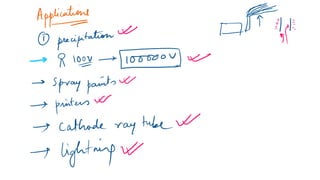 Applications
① precipitation
→ R 100V → 100000V
→ Spray paints
→ printers
→ Cathode ray tube
→ lightning